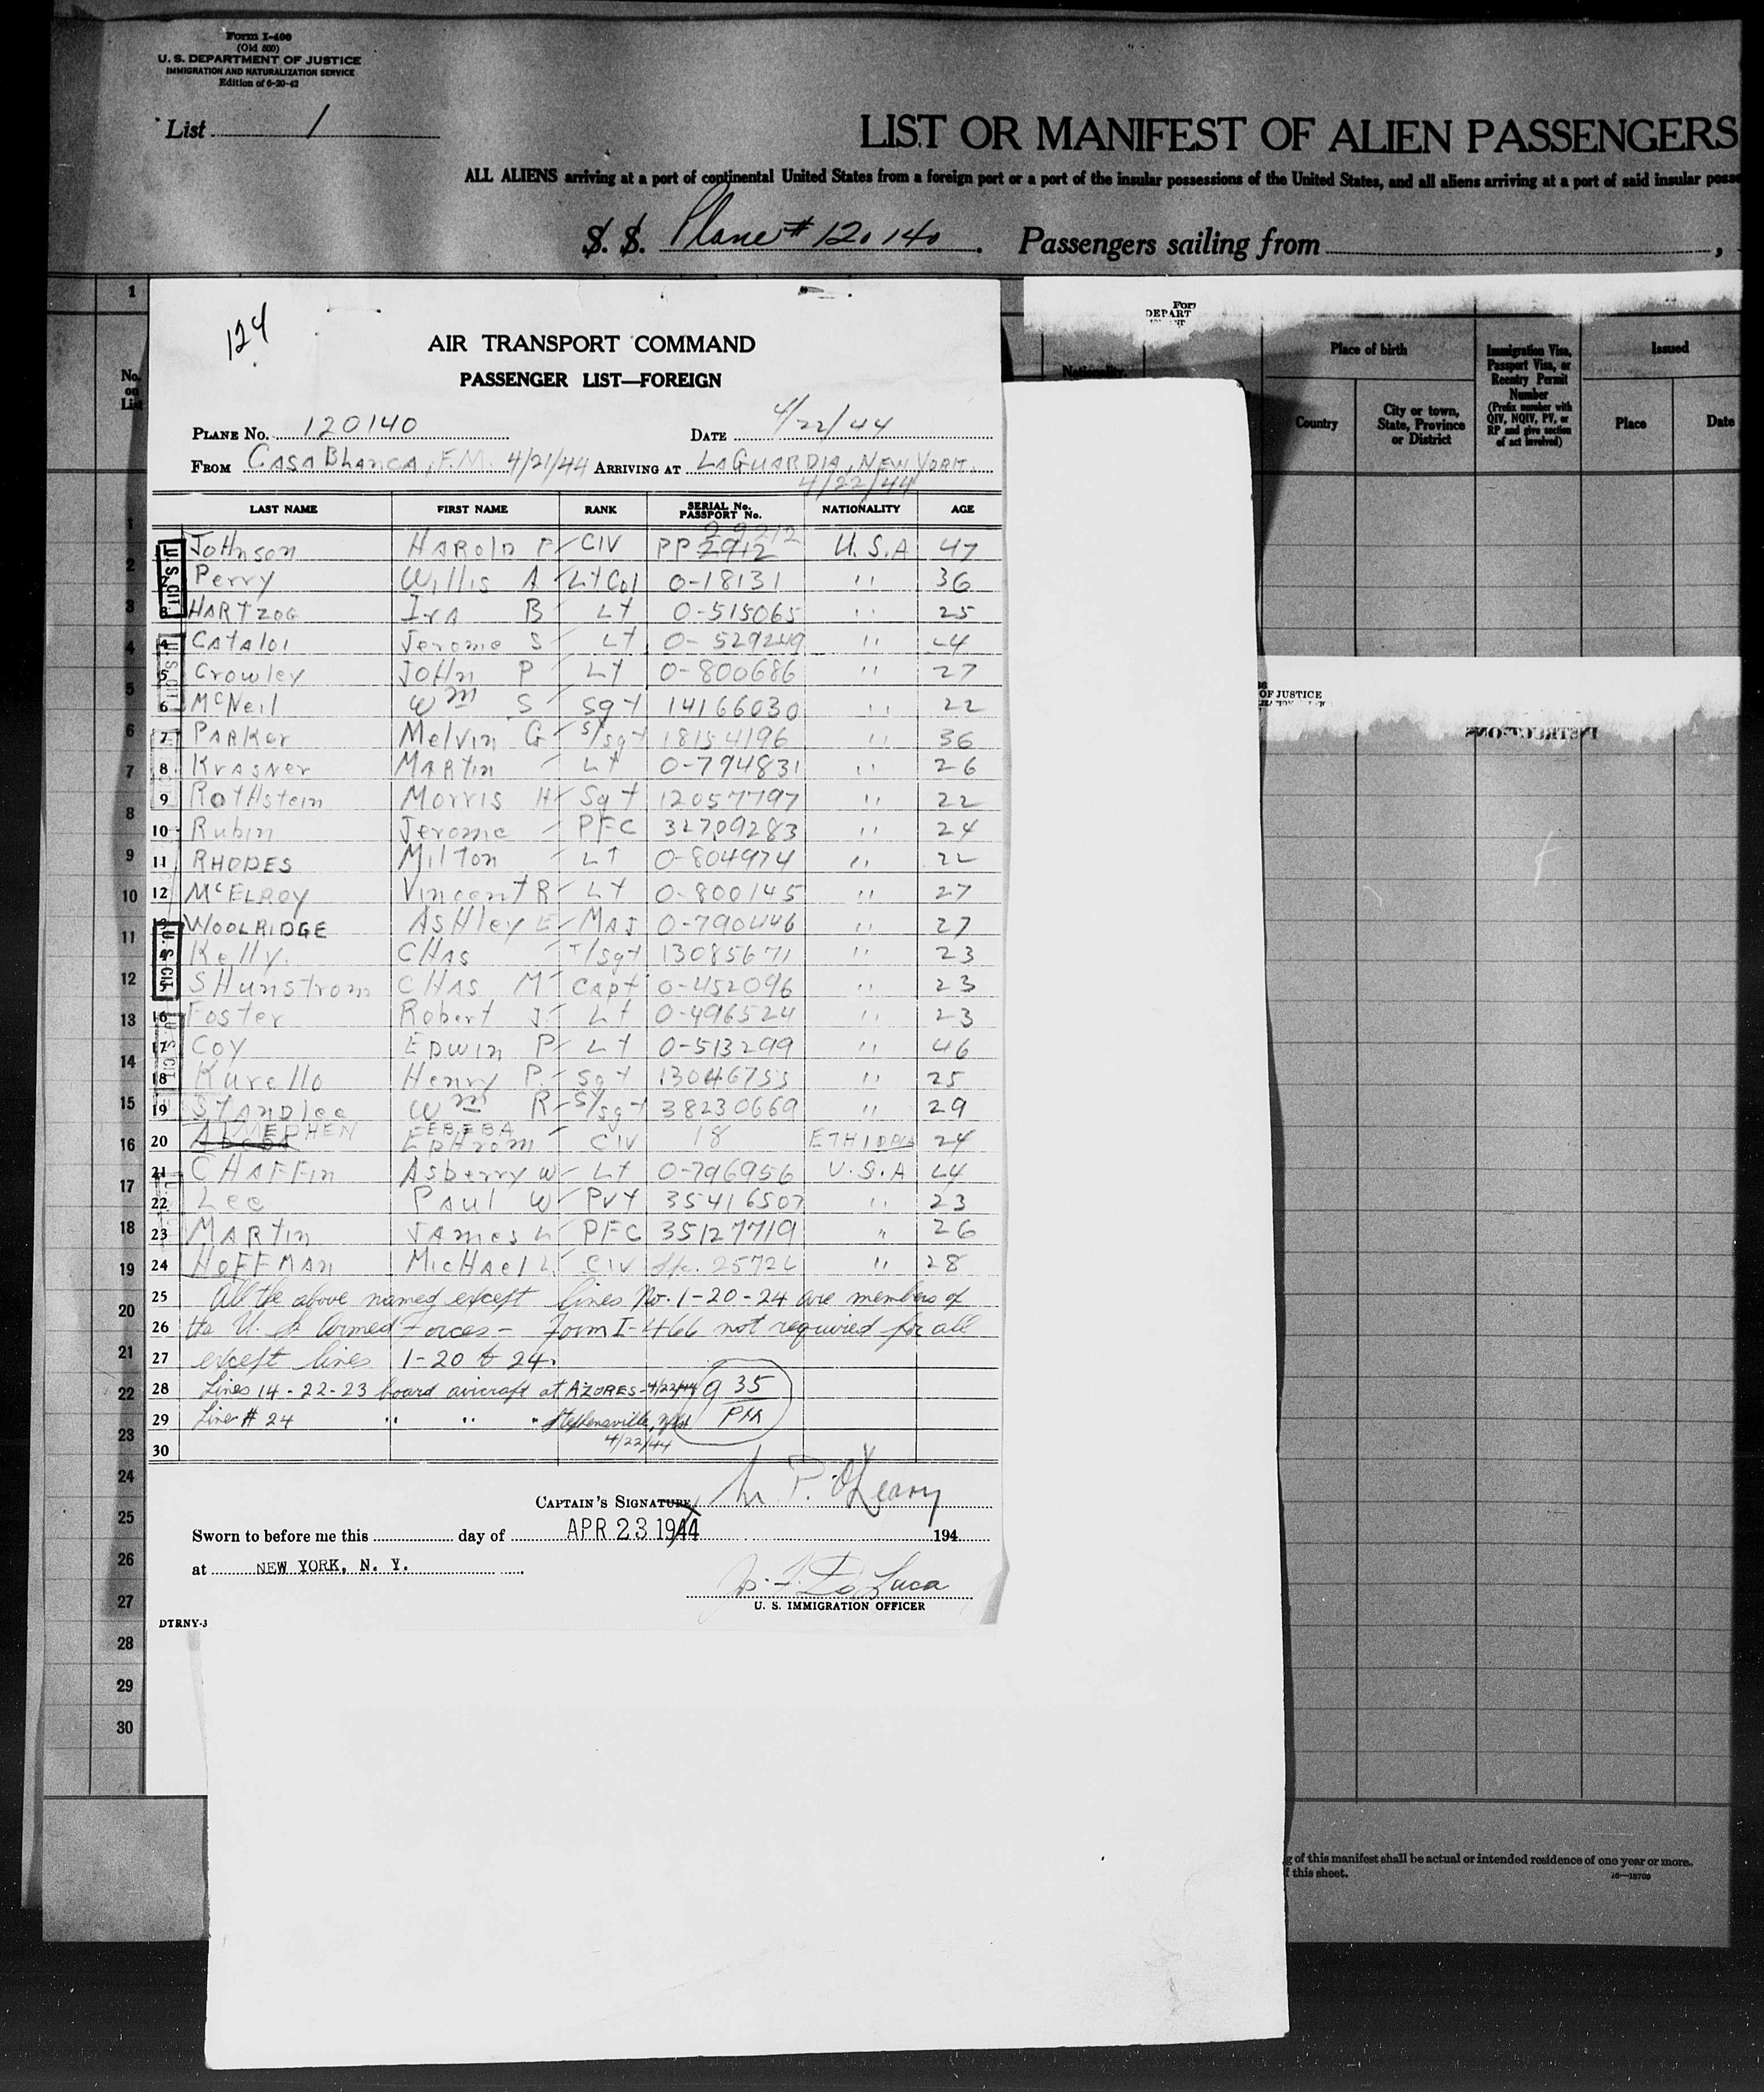 Form I-400
(Old 500)
U. S. DEPARTMENT OF JUSTICE
IMMIGRATION AND NATURALIZATION SERVICE
Edition of 6-20-42
List 1
LIST OR MANIFEST OF ALIEN PASSENGERS
ALL ALIENS arriving at a port of continental United States from a foreign port or a port of the insular possessions of the United States, and all aliens arriving at a port of said insular
S. S. Plane # 120140. Passengers sailing from ,
124
AIR TRANSPORT COMMAND
PASSENGER LIST—FOREIGN
PLANE NO. 120140 DATE 4/22/44
FROM CASABLANCA, F.M. 4/21/44 ARRIVING AT LAGUARDIA, NEW YORK.
4/22/44
LAST NAME FIRST NAME RANK SERIAL NO. PASSPORT NO. NATIONALITY AGE
1 JoHnson HAROLD P CIV PP 2912 29212 U.S.A 47
2 Perry Willis A Lt Col O-18131 '' 36
3 HARTZOG IrA B Lt O-515065 '' 25
4 CATALOI Jerome S Lt O-529249 '' 24
5 Crowley JOHn P Lt O-800686 '' 27
6 McNeil Wm S Sgt 14166030 '' 22
7 PARKer Melvin G S/Sgt 18154196 '' 36
8 KrASNer MARTin Lt O-794831 '' 26
9 RotHstein Morris H Sgt 12057797 '' 22
10 Rubin Jerome PFC 32709283 '' 24
11 RHODES Milton Lt O-804974 '' 22
12 McELROY Vincent R Lt O-800145 '' 27
13 WOOLRIDGE ASHley E MAJ O-790446 '' 27
14 Kelly CHAS T/Sgt 13085671 '' 23
15 SHunstrom CHAS M Capt O-452096 '' 23
16 Foster Robert J. Lt O-496524 '' 23
17 COY EDWin P Lt O-513299 '' 46
18 Kurello Henry P. Sgt 13046755 '' 25
19 STANDlee Wm R S/Sgt 38230669 '' 29
20 EPHrom CIV 18 ETHIOPIA 24
21 CHAFFin Asberry W Lt O-796956 U.S.A 24
22 Lee PAul W Pvt 35416507 '' 23
23 MARTin JAmes L PFC 35127719 '' 26
24 HOFFMAn MicHAel L CIV 25726 '' 28
25 All the above named except lines No. 1-20-24 are members of
26 the U. S. Armed Forces - Form I-466 not required for all
27 except lines 1-20 & 24.
28 Lines 14-22-23 board aircraft at AZORES-4/22/44 9 35
29 Line # 24 '' '' '' Stephensville, Nfld PM
30 4/22/44
U. S. CIT
U. S. CIT
U. S. CIT
U. S. CIT
CAPTAIN'S SIGNATURE P. O'Leary
Sworn to before me this day of APR 23 1944 194
at NEW YORK, N. Y.
Jos. F. De Luca
U. S. IMMIGRATION OFFICER
DTRNY-3
No. on List
1
1
2
3
4
5
6
7
8
9
10
11
12
13
14
15
16
17
18
19
20
21
22
23
24
25
26
27
28
29
30
DEPART
Nationality.
Place of birth
Country
City or town, State, Province or District
Immigration Visa, Passport Visa, or Reentry Permit Number
(Prefix number with QIV, NQIV, PV, or RP and give section of act involved)
Issued
Place
Date
OF JUSTICE
INSTRUCTIONS
of this manifest shall be actual or intended residence of one year or more.
this sheet.
16—18709